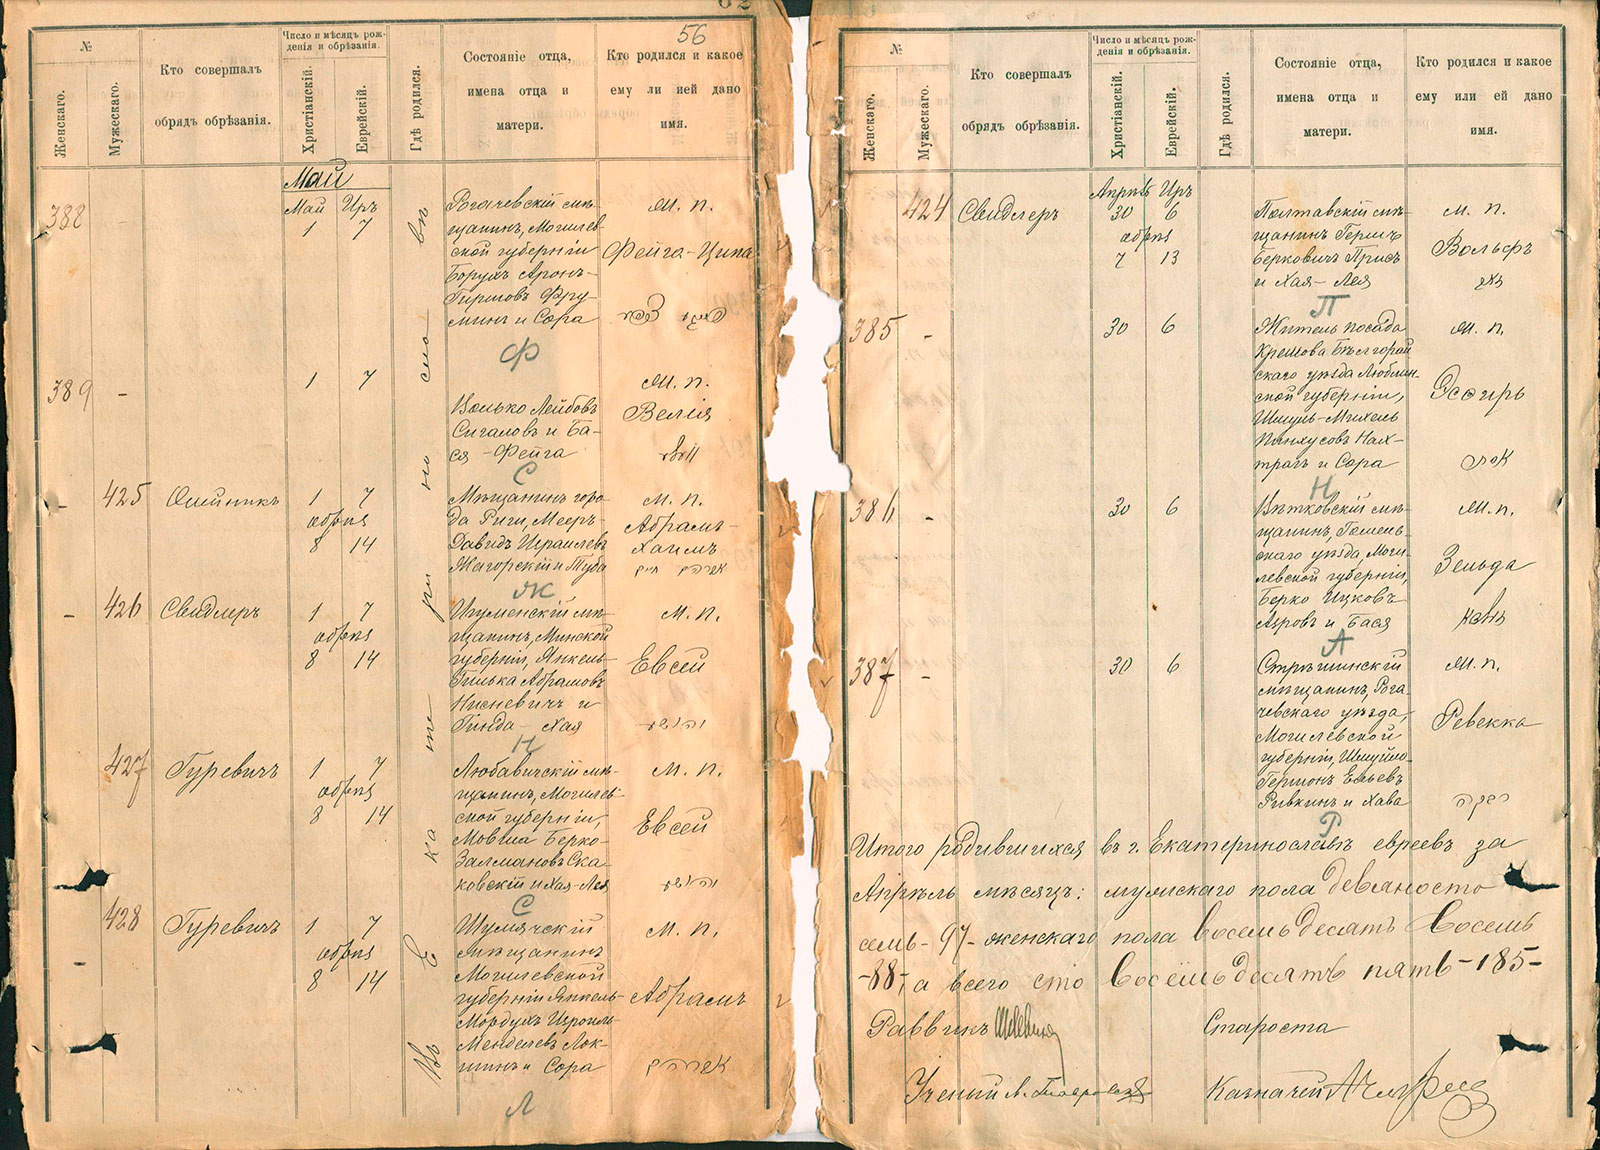 56
№
Женскаго.
Мужескаго.
Кто совершалъ
обрядъ обрѣзанія.
Число и мѣсяцъ рож-
денія и обрѣзанія.
Христіанскій.
Еврейскій.
Гдѣ родился.
Состояніе отца,
имена отца и
матери.
Кто родился и какое
ему ли ией дано
имя.
Май
388
-
Май Иръ
1 7
Рогачевскій мѣ-
щанинъ, Могилев-
ской губерніи
Борухъ Аронъ-
Гиршовъ Фру-
минъ и Сора
м. п.
Фейга-Ципа
Ф
389
-
1 7
Лейбовъ
Сигаловъ и Ба-
ся-Фейга
м. п.
Велія
С
-
425
Олейникъ
1 7
обрѣз
8 14
Мѣщанинъ горо-
да Риги, Мееръ-
Давидъ Израилевъ
Жагорскій и Туба
м. п.
Абрамъ-
Хаимъ
אברהם חיים
Ж
-
426
Свидлеръ
1 7
обрѣз
8 14
Игуменскій мѣ-
щанинъ, Минской
губерніи, Янкель-
Гилька Абрамовъ
Нисневичъ и
Гинда-Хая
м. п.
Евсей
יהושע
Н
427
Гуревичъ
1 7
обрѣз
8 14
Любавичскій мѣ-
щанинъ, Могилев-
ской губерніи,
Мовша Берко-
Залмановъ Ска-
ковскій и Хая-Лея
м. п.
Евсей
יהושע
С
-
428
Гуревичъ
1 7
обрѣз
8 14
Шумячскій
мѣщанинъ
Могилевской
губерніи Янкель-
Мордухъ Изроиль-
Менделевъ Лок-
шинъ и Сора
м. п.
Абрамъ
אברהם
Л
Въ Екатеринославѣ
№
Женскаго.
Мужескаго.
Кто совершалъ
обрядъ обрѣзанія.
Число и мѣсяцъ рож-
денія и обрѣзанія.
Христіанскій.
Еврейскій.
Гдѣ родился.
Состояніе отца,
имена отца и
матери.
Кто родился и какое
ему или ей дано
имя.
424
Свидлеръ
Апрѣль Иръ
30 6
обрѣз
7 13
Полтавскій мѣ-
щанинъ Гершъ
Берковичъ Присъ
и Хая-Лея
м. п.
Вольфъ
זאב
П
385
-
30 6
Житель посада
Крешова Бѣлгорай-
скаго уѣзда Люблин-
ской губерніи,
Шмуль-Михель
Пинхусовъ
и Сора
м. п.
Эсѳирь
אסתר
Н
386
-
30 6
Вѣтковскій мѣ-
щанинъ, Гомель-
скаго уѣзда, Моги-
левской губерніи,
Берко Ицковъ
Азровъ и Бася
м. п.
Зельда
А
387
-
30 6
Стрѣшинскій
мѣщанинъ, Рога-
чевскаго уѣзда,
Могилевской
губерніи, Шмуйло-
Гершонъ Евьевъ
Ривкинъ и Хава
м. п.
Ревекка
רבקה
Р
Итого родившихся въ г. Екатеринославѣ евреевъ за
Апрѣль мѣсяцъ: мужскаго пола девяносто
семь-97-женскаго пола восемьдесятъ восемь
-88-, а всего сто восемьдесятъ пять-185-
Раввинъ
Староста
Ученый
Казначей